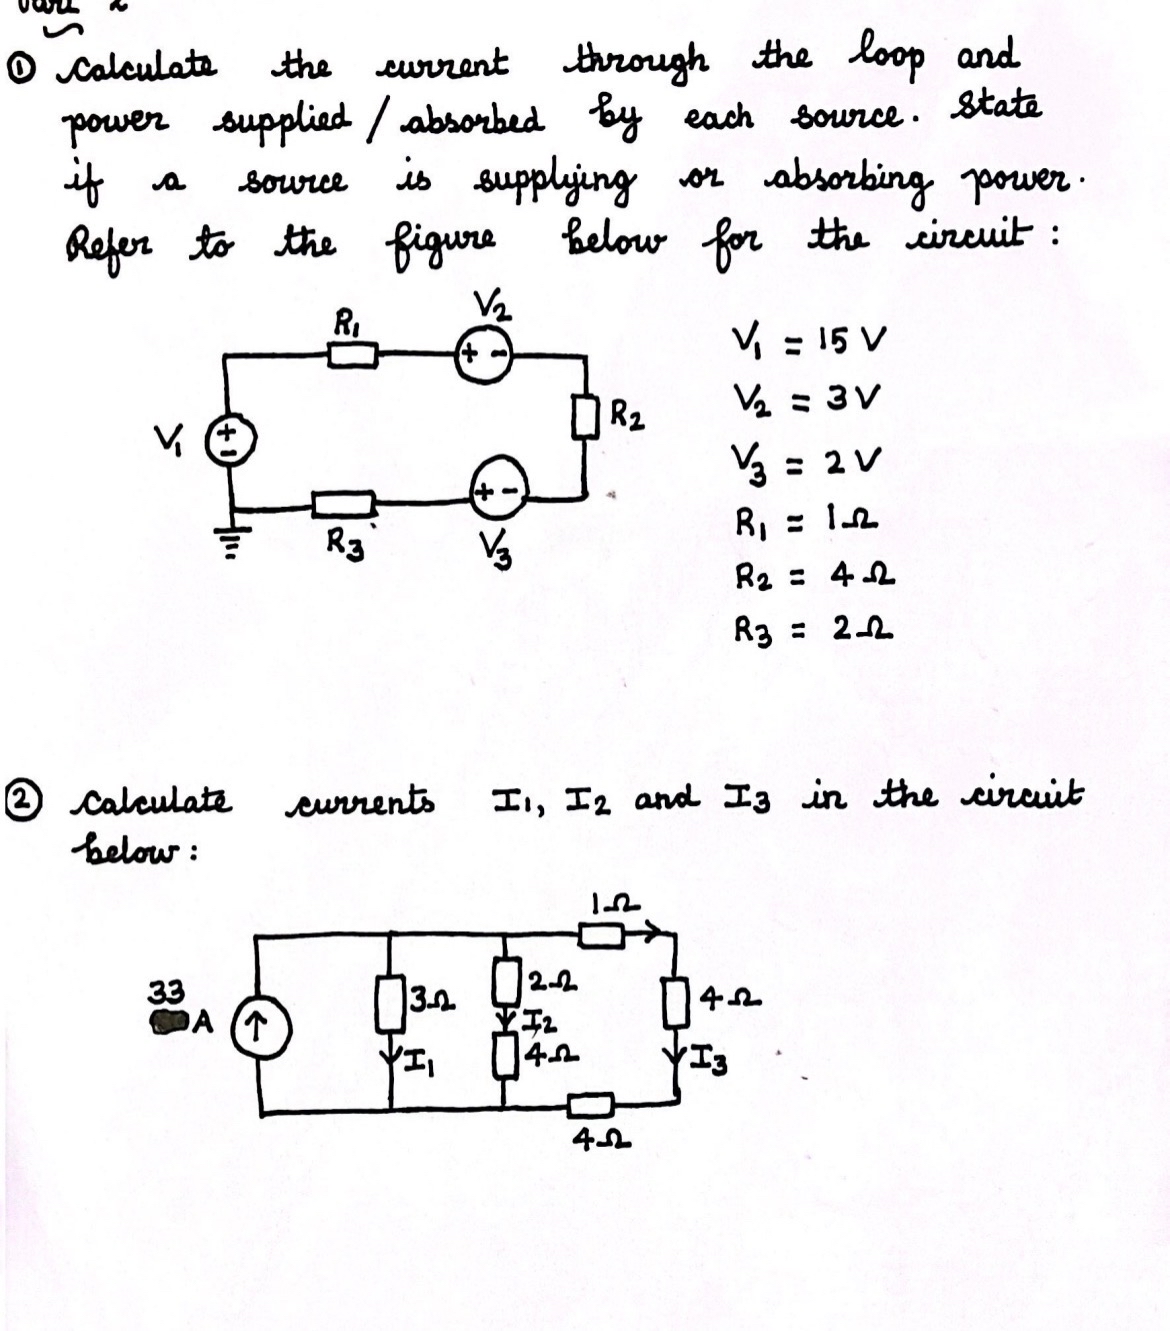 ① Calculate the current through the loop and
power supplied / absorbed by each source. State
if a source is supplying or absorbing power.
Refer to the figure below for the circuit :
V₂
R₁
+ -
V₁ = 15 V
V₂ = 3 V
R₂
V₁
+
-
V₃ = 2 V
+ -
R₁ = 1Ω
R₃
V₃
R₂ = 4Ω
R₃ = 2Ω
② Calculate currents I₁, I₂ and I₃ in the circuit
below :
1Ω
33
A
3Ω
2Ω
4Ω
I₂
I₁
4Ω
I₃
4Ω